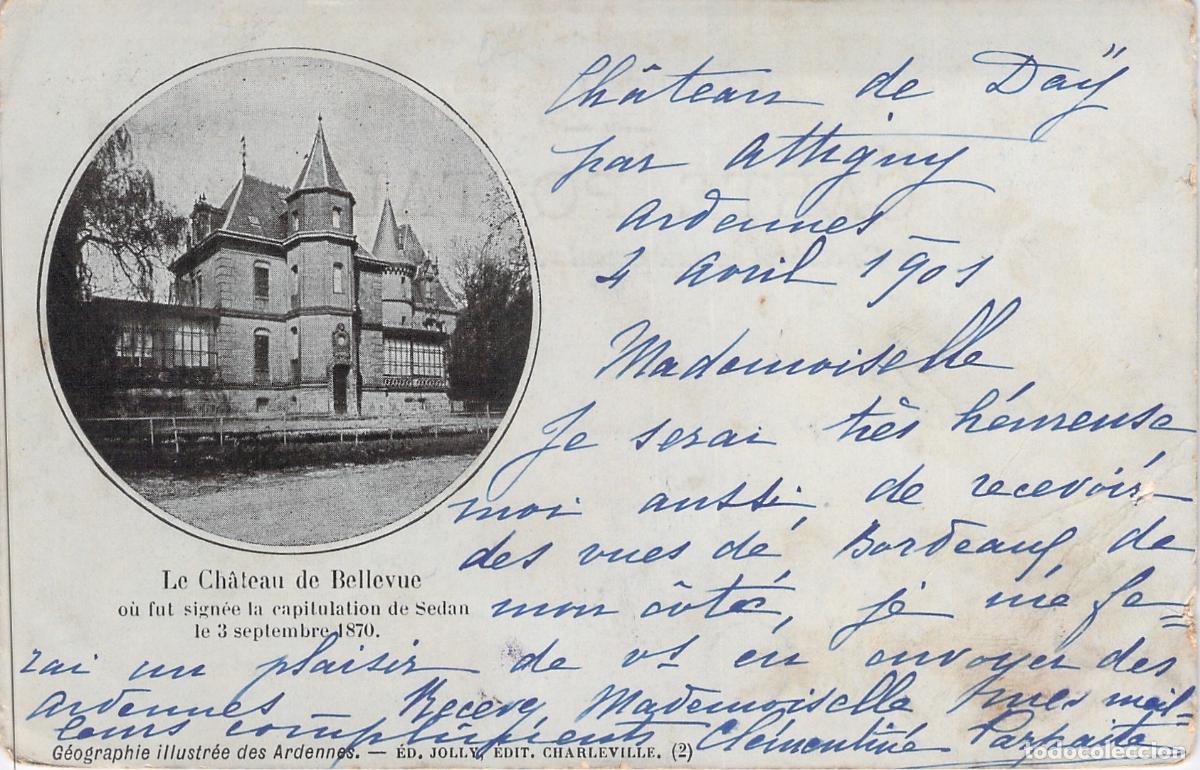 Château de Daÿ
par Attigny
Ardennes
4 Avril 1901
Mademoiselle
Je serai très héureuse
moi aussi, de recevoir
des vues de Bordeaux, de
mon côté, je me fe=
rai un plaisir de vs en envoyer des
Ardennes Recevez Mademoiselle mes meil=
leurs compliments Clémentine Parfaite
Le Château de Bellevue
où fut signée la capitulation de Sedan
le 3 septembre 1870.
Géographie illustrée des Ardennes. — ÉD. JOLLY, ÉDIT. CHARLEVILLE. (2)
todocoleccion